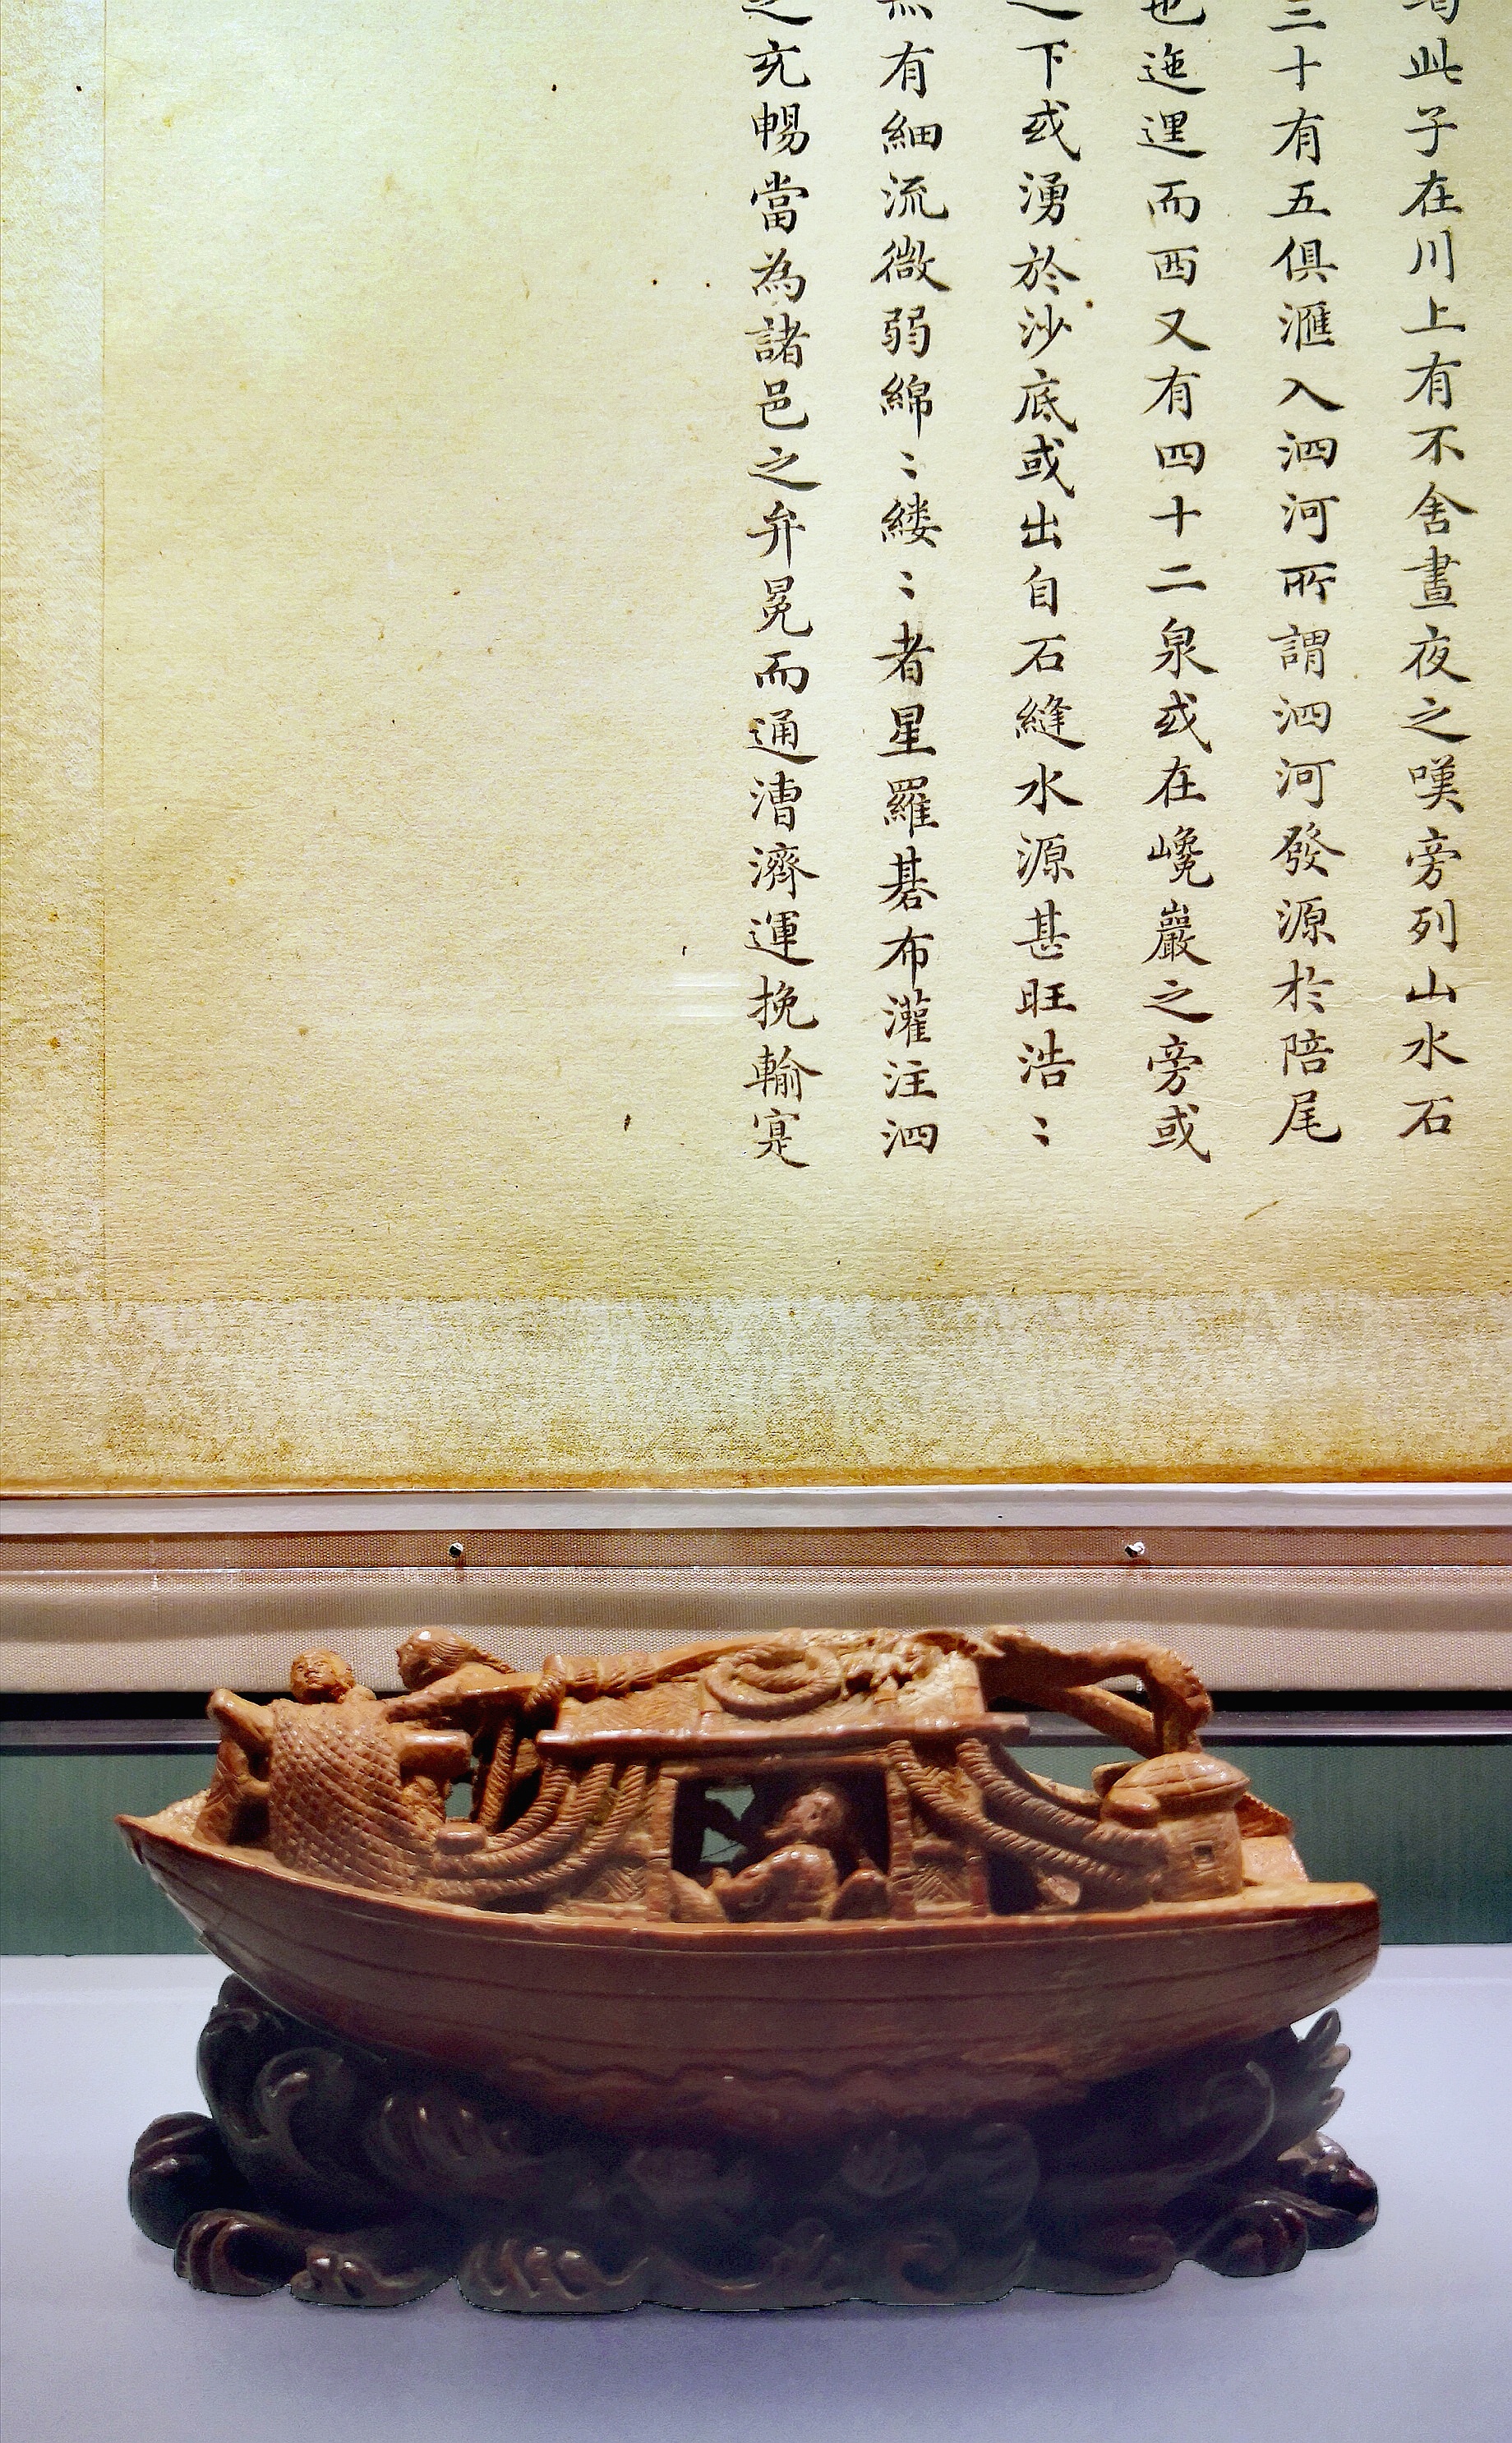 此子在川上有不舍晝夜之嘆旁列山水石
三十有五俱滙入泗河所謂泗河發源於陪尾
也迤逦而西又有四十二泉或在巉巖之旁或
之下或湧於沙底或出自石縫水源甚旺浩〻
有細流微弱綿〻縷〻者星羅碁布灌注泗
之充暢當為諸邑之弁冕而通漕濟運挽輸寔